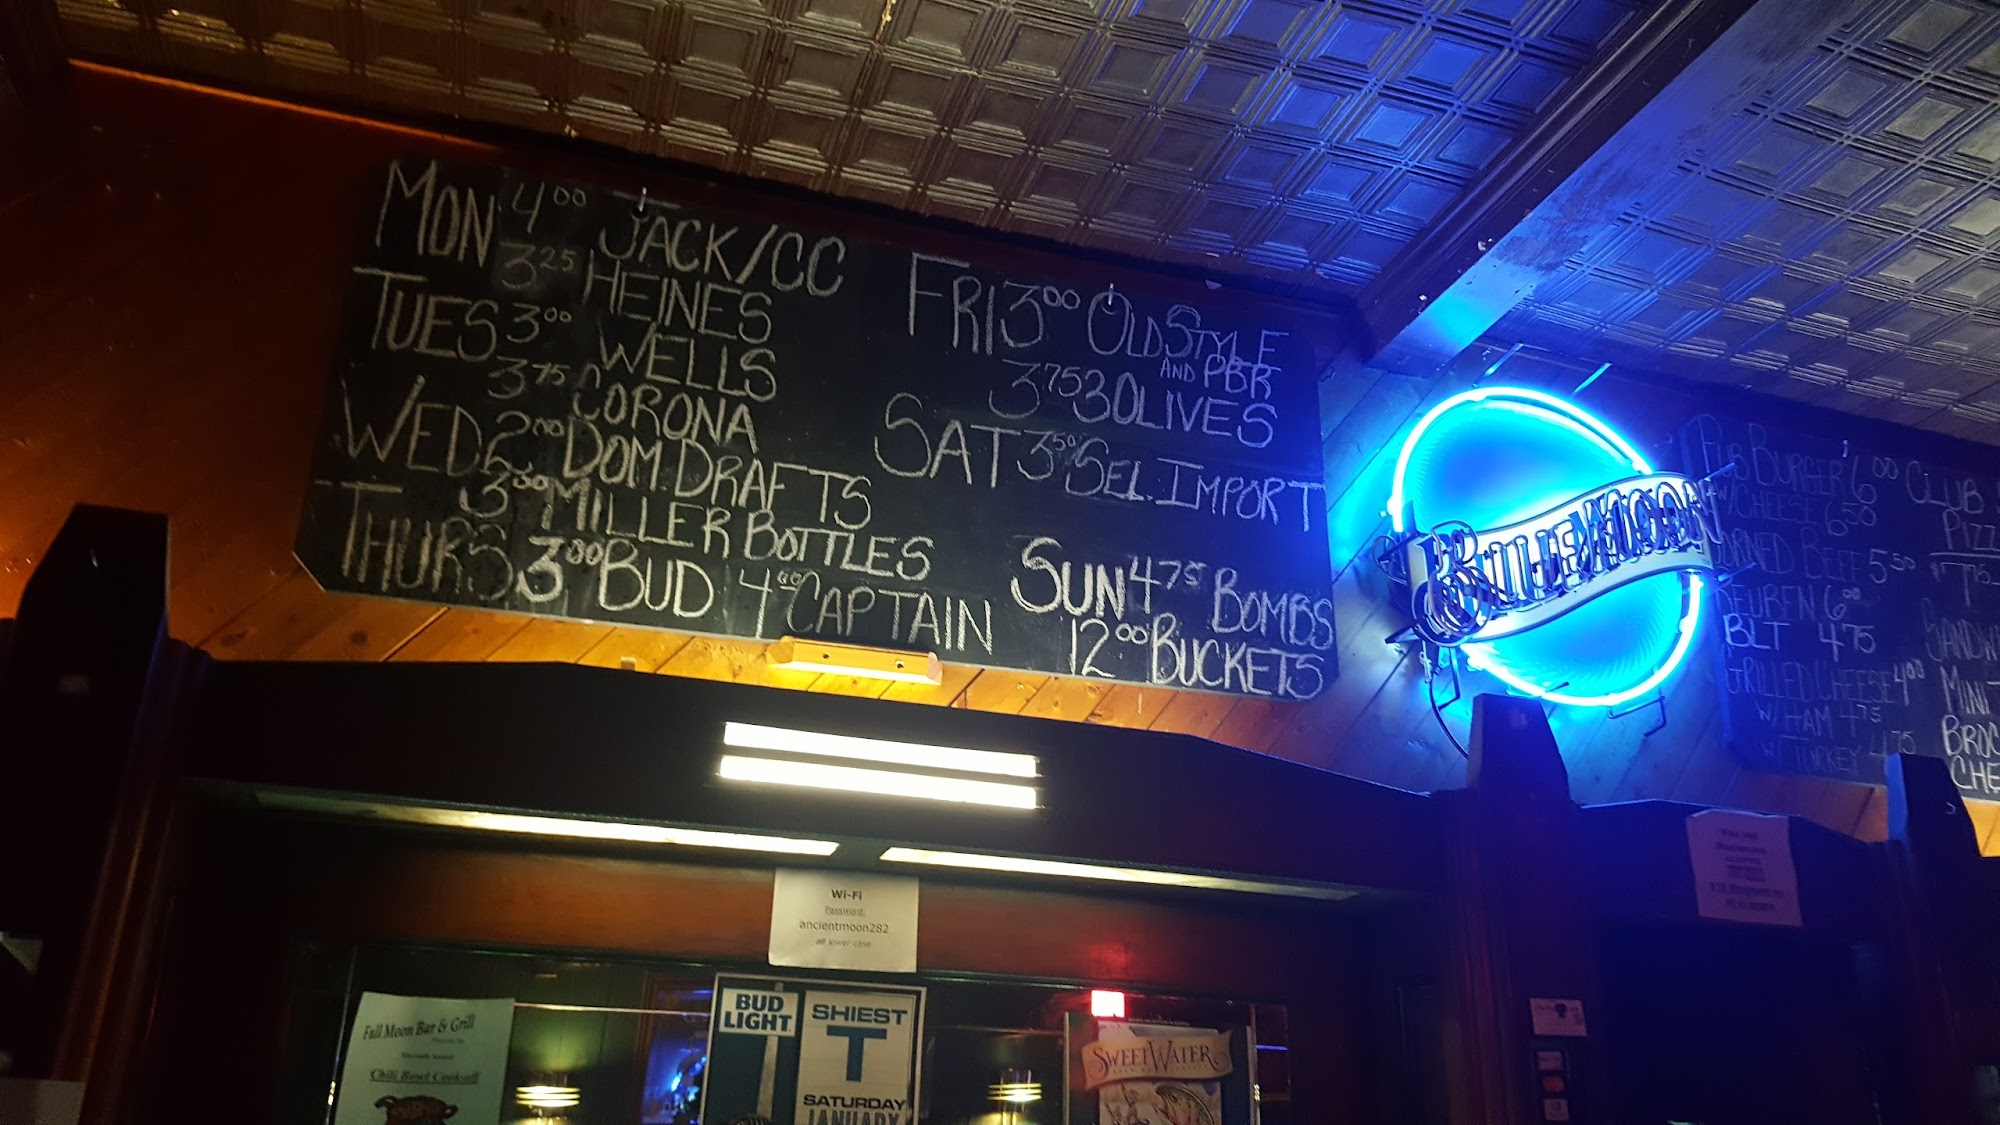 MON 4.00 JACK/CC
3.25 HEINES
TUES 3.00 WELLS
3.75 CORONA
WED 2.00 DOM. DRAFTS
3.00 MILLER BOTTLES
THURS 3.00 BUD 4.00 CAPTAIN
FRI 3.00 OLD STYLE
AND PBR
3.75 3 OLIVES
SAT 3.50 SEL. IMPORT
SUN 4.75 BOMBS
12.00 BUCKETS
BLUE MOON
PUB BURGER 6.00
W/CHEESE 6.50
CORNED BEEF 5.50
REUBEN 6.00
BLT 4.75
GRILLED CHEESE 4.00
W/ HAM 4.75
W/ TURKEY 4.75
CLUB
PIZZ
SANDW
MINI
BROC
CHE
Wi-Fi
Password:
ancientmoon282
all lower case
Full Moon Bar & Grill
Chili Bowl Cookoff
BUD
LIGHT
SHIEST
T
SATURDAY
JANUARY
SWEETWATER